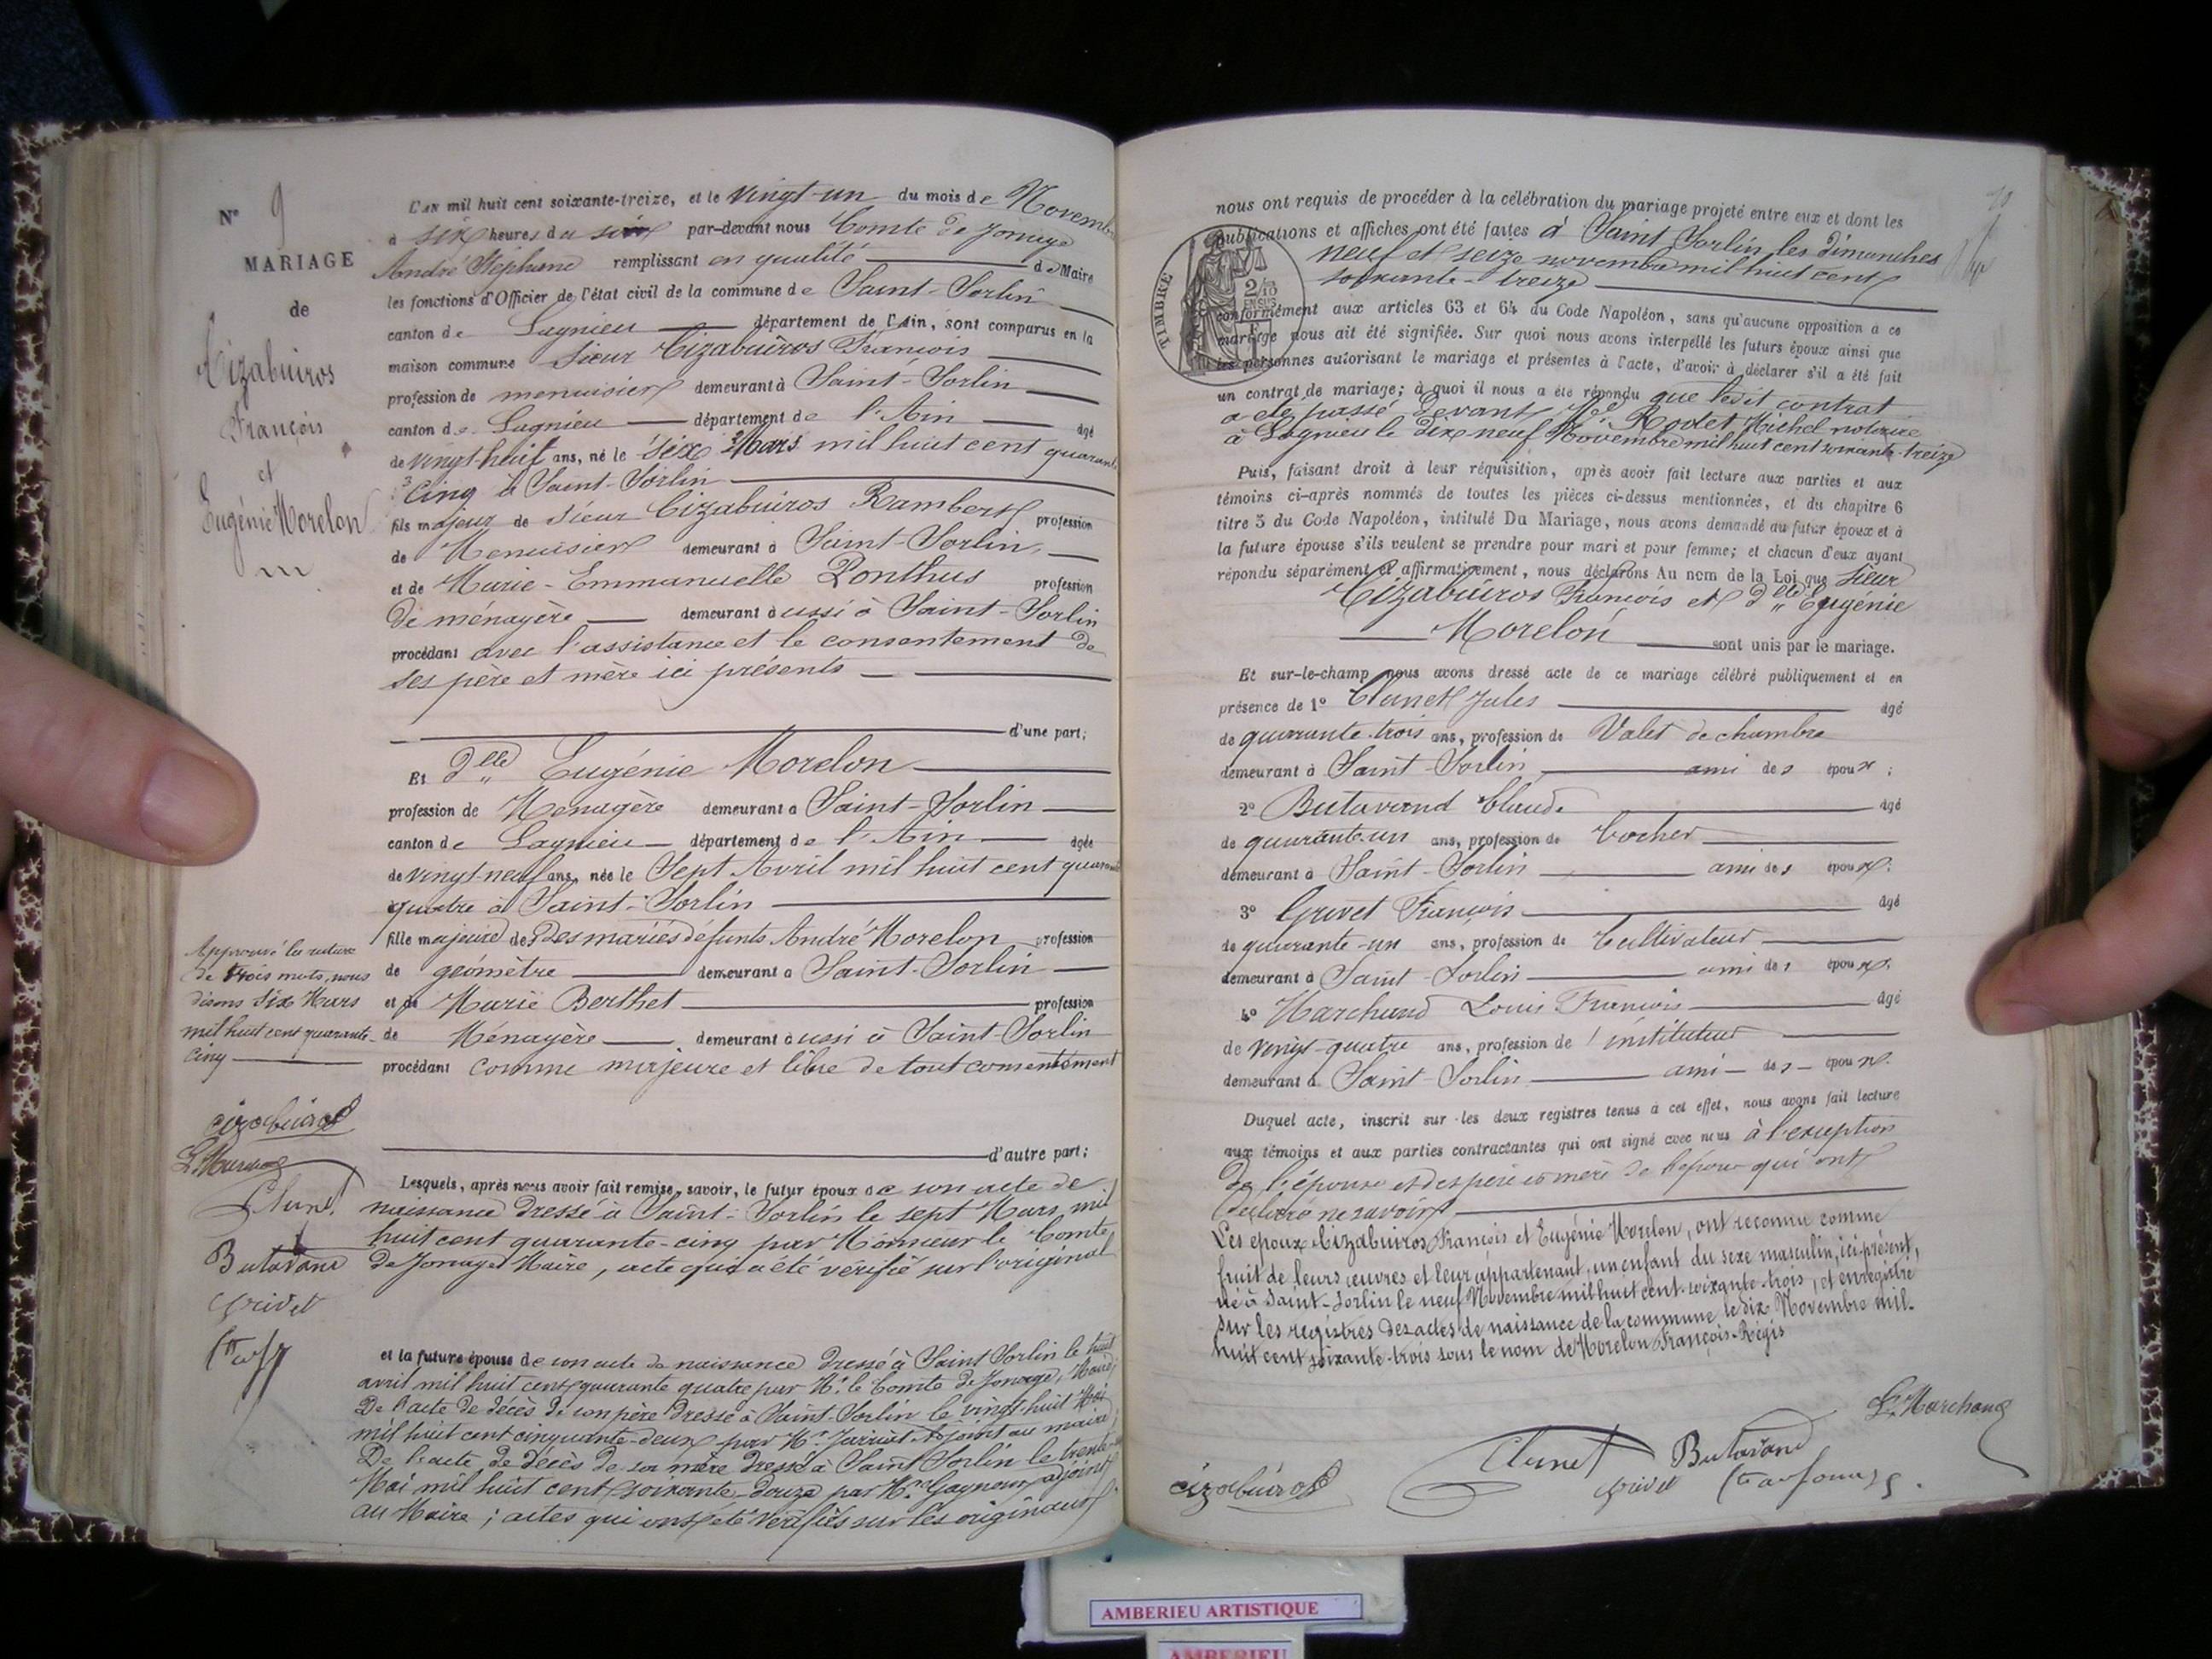 Nº 9
MARIAGE
de
Cizabuiros
François
et
Eugénie Morelon
L'AN mil huit cent soixante-treize, et le vingt-un du mois de Novembre
à six heures du soir par-devant nous Comte de Jonage
André Stéphane remplissant en qualité de Maire
les fonctions d'Officier de l'état civil de la commune de Saint-Sorlin
canton de Lagnieu département de l'Ain, sont comparus en la
maison commune Sieur Cizabuiros François
profession de menuisier demeurant à Saint-Sorlin
canton de Lagnieu département de l'Ain âgé
de vingt-huit ans, né le six Mars mil huit cent quarante
cinq à Saint-Sorlin
fils majeur de Sieur Cizabuiros Rambert profession
de Menuisier demeurant à Saint-Sorlin
et de Marie-Emmanuelle Ponthus profession
de ménagère demeurant aussi à Saint-Sorlin
procédant avec l'assistance et le consentement de
ses père et mère ici présents
d'une part;
Et Dlle Eugénie Morelon
profession de Ménagère demeurant à Saint-Sorlin
canton de Lagnieu département de l'Ain âgée
de vingt-neuf ans, née le Sept Avril mil huit cent quarante
quatre à Saint-Sorlin
fille majeure de Des mariés defunts André Morelon profession
de géomètre demeurant à Saint-Sorlin
et de Marie Berthet profession
de Ménagère demeurant aussi à Saint-Sorlin
procédant comme majeure et libre de tout consentement
d'autre part;
Approuvé la rature
de trois mots, nous
disons Six Mars
mil huit cent quarante-
cinq
cizabuiros
L. Marchand
Clunet
Butavand
grivet
Lesquels, après nous avoir fait remise, savoir, le futur époux de son acte de
naissance dressé à Saint-Sorlin le sept Mars mil
huit cent quarante-cinq par Monsieur le Comte
de Jonage Maire, acte qui a été vérifié sur l'original
et la future épouse de son acte de naissance dressé à Saint Sorlin le huit
avril mil huit cent quarante quatre par Mr. le Comte de Jonage, Maire;
De l'acte de décès de son père dressé à Saint-Sorlin le vingt-huit Mai
mil huit cent cinquante-deux par Mr. Adjoint au maire;
De l'acte de décès de sa mère dressé à Saint Sorlin le trente
Mai mil huit cent soixante-douze par Mr. Gagneux adjoint
au Maire; actes qui ont été vérifiés sur les originaux
nous ont requis de procéder à la célébration du mariage projeté entre eux et dont les
publications et affiches ont été faites à Saint Sorlin les dimanches
neuf et seize novembre mil huit cent
soixante-treize
TIMBRE
2/10
EN SUS
conformément aux articles 63 et 64 du Code Napoléon, sans qu'aucune opposition à ce
mariage nous ait été signifiée. Sur quoi nous avons interpellé les futurs époux ainsi que
les personnes autorisant le mariage et présentes à l'acte, d'avoir à déclarer s'il a été fait
un contrat de mariage; à quoi il nous a été répondu que ledit contrat
a été passé devant Me Rodet Michel notaire
à Lagnieu le dix neuf Novembre mil huit cent soixante-treize
Puis, faisant droit à leur réquisition, après avoir fait lecture aux parties et aux
témoins ci-après nommés de toutes les pièces ci-dessus mentionnées, et du chapitre 6
titre 5 du Code Napoléon, intitulé Du Mariage, nous avons demandé au futur époux et à
la future épouse s'ils veulent se prendre pour mari et pour femme; et chacun d'eux ayant
répondu séparément et affirmativement, nous déclarons Au nom de la Loi que Sieur
Cizabuiros François et Dlle Eugénie
Morelon sont unis par le mariage.
Et sur-le-champ nous avons dressé acte de ce mariage célébré publiquement et en
présence de 1º Clunet Jules âgé
de quarante-trois ans, profession de Valet de chambre
demeurant à Saint-Sorlin ami des époux;
2º Butavand Claude âgé
de quarante-un ans, profession de Cocher
demeurant à Saint-Sorlin ami des époux;
3º Grivet François âgé
de quarante-un ans, profession de Cultivateur
demeurant à Saint-Sorlin ami des époux;
4º Marchand Louis François âgé
de vingt-quatre ans, profession de instituteur
demeurant à Saint-Sorlin ami des époux.
Duquel acte, inscrit sur les deux registres tenus à cet effet, nous avons fait lecture
aux témoins et aux parties contractantes qui ont signé avec nous à l'exception
de l'épouse et des père et mère de l'époux qui ont
déclaré ne savoir
Les époux Cizabuiros François et Eugénie Morelon, ont reconnu comme
fruit de leurs œuvres et leur appartenant, un enfant du sexe masculin, ici présent,
né à Saint-Sorlin le neuf Novembre mil huit cent soixante-trois, et enregistré
sur les registres des actes de naissance de la commune, le dix Novembre mil-
huit cent soixante-trois sous le nom de Morelon François-Régis
L. Marchand
cizabuiros
Clunet
Butavand
grivet
AMBERIEU ARTISTIQUE
AMBERIEU